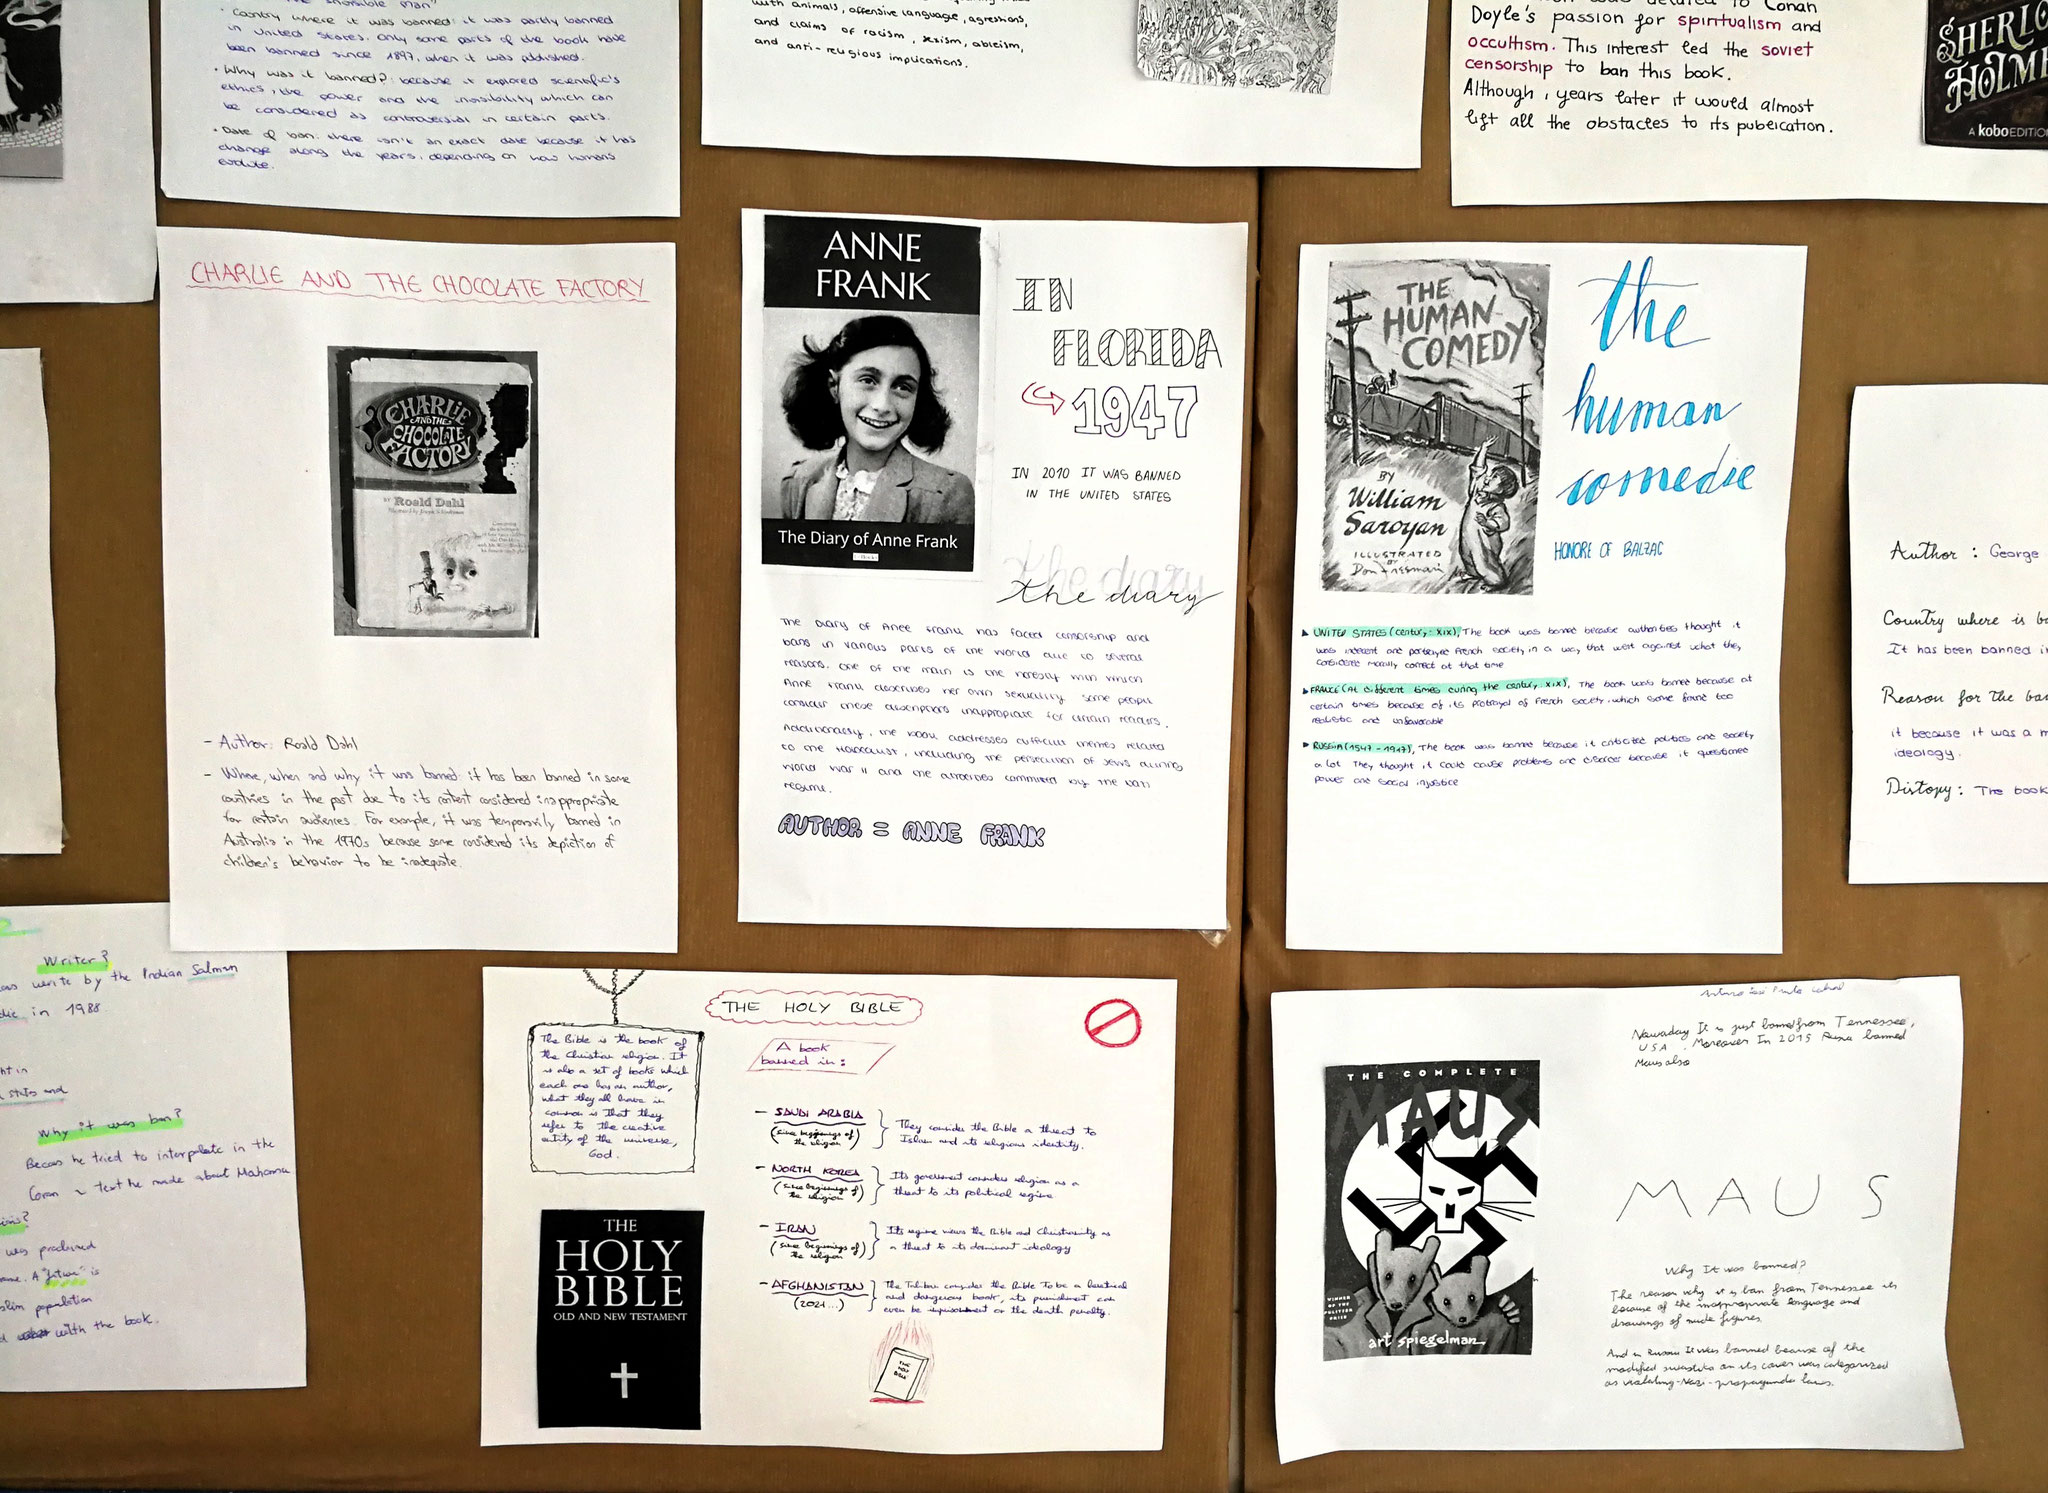 • Country where it was banned: it was partly banned
in United States. Only some parts of the book have
been banned since 1897, when it was published.
• Why was it banned?: because it explored scientific's
ethics, the power and the invisibility which can
be considered as controversial in certain parts.
• Date of ban: there isn't an exact date because it has
change along the years, depending on how humans
evolute.
with animals, offensive language, agressions,
and claims of racism, sexism, ableism,
and anti-religious implications.
Doyle's passion for spiritualism and
occultism. This interest led the soviet
censorship to ban this book.
Although, years later it would almost
lift all the obstacles to its publication.
A kobo EDITION
CHARLIE AND THE CHOCOLATE FACTORY
CHARLIE
AND THE
CHOCOLATE
FACTORY
BY Roald Dahl
- Author: Roald Dahl
- Where, when and why it was banned: it has been banned in some
countries in the past due to its content considered inappropriate
for certain audiences. For example, it was temporarily banned in
Australia in the 1970s because some considered its depiction of
children's behavior to be inadequate.
ANNE
FRANK
The Diary of Anne Frank
IN
FLORIDA
1947
IN 2010 IT WAS BANNED
IN THE UNITED STATES
the diary
the diary
The Diary of Anee Frank has faced censorship and
bans in various parts of the world due to several
reasons. One of the main is the honesty with which
Anne Frank describes her own sexuality. Some people
consider these descriptions inappropiate for certain readers.
Additionally, the book addresses difficult themes related
to the Holocaust, including the persecution of Jews during
World War II and the atrocities committed by the Nazi
regime.
AUTHOR = ANNE FRANK
THE
HUMAN
COMEDY
BY
William
Saroyan
ILLUSTRATED
BY
Don Freeman
the
human
comedie
HONORE OF BALZAC
UNITED STATES (century: XIX), The book was banned because authorities thought it
was indecent and portrayed French society in a way that went against what they
considered morally correct at that time
FRANCE (At different times during the century XIX), The book was banned because at
certain times because of its protrayal of French society, which some found too
realistic and unfavorable
RUSSIA (1547-1917), The book was banned because it criticized politics and society
a lot. They thought it could cause problems and disorder because it questioned
power and social injustice
Author: George
Country where is
It has been banned
Reason for the
it because it was a
ideology.
Distopy: The book
Writer?
write by the Indian Salman
in 1988
states and
Why it was ban?
Becaus he tried to interpolate in the
Coran a text he made about
was
A "fatwa" is
population
with the book.
THE HOLY BIBLE
A book
banned in:
The Bible is the book of
the Christian religion. It
is also a set of books which
each one has an author,
what they all have in
common is that they
refer to the creative
entity of the universe,
God.
THE
HOLY
BIBLE
OLD AND NEW TESTAMENT
- SAUDI ARABIA
(since beginnings of
the religion)
They consider the Bible a threat to
Islam and its religious identity.
- NORTH KOREA
(since beginnings of
the religion)
Its government considers religion as a
threat to its political regime
- IRAN
(since beginnings of
the religion)
Its regime views the Bible and Christianity as
a threat to its dominant ideology
- AFGHANISTAN
(2021...)
The Taliban considers the Bible to be a heretical
and dangerous book, its punishment can
even be imprisonment or the death penalty.
THE
HOLY
BIBLE
Nowaday It is just banned from Tennessee,
USA. Moreover In 2015 Rusia banned
Maus also
THE COMPLETE
MAUS
WINNER
OF THE
PULITZER
PRIZE
art spiegelman
MAUS
Why It was banned?
The reason why it is ban from Tennessee is
because of the inappropriate language and
drawings of nude figures.
And in Russia It was banned because of the
modified swastika on its cover was categorized
as violating-Nazi-propaganda laws.